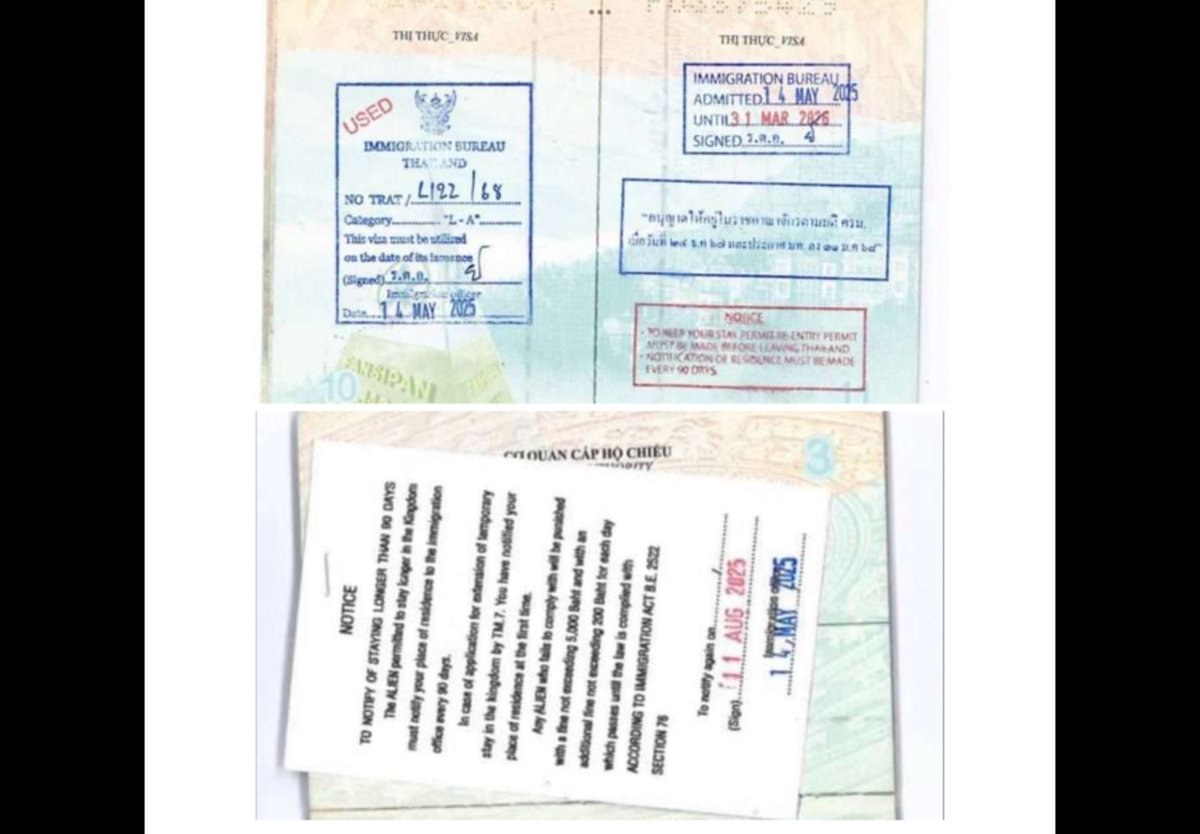 THỊ THỰC_VISA
USED
IMMIGRATION BUREAU
THAILAND
NO TRAT / L122 / 68
Category............ "L - A"............
This visa must be utilized
on the date of its issuance
(Signed) ร.ต.อ.
Immigration officer
Date....14 MAY 2025
FANSIPAN
10
THỊ THỰC_VISA
IMMIGRATION BUREAU
ADMITTED 14 MAY 2025
UNTIL 31 MAR 2026
SIGNED ร.ต.อ.
"อนุญาตให้อยู่ในราชอาณาจักรตามมติ ครม.
เมื่อวันที่ ๒๔ ธ.ค ๖๗ และประกาศ มท. ลง ๓๑ ม.ค ๖๘"
NOTICE
- TO KEEP YOUR STAY PERMIT RE-ENTRY PERMIT
MUST BE MADE BEFORE LEAVING THAILAND
- NOTIFICATION OF RESIDENCE MUST BE MADE
EVERY 90 DAYS
CƠ QUAN CẤP HỘ CHIẾU
3
NOTICE
TO NOTIFY OF STAYING LONGER THAN 90 DAYS
The ALIEN permitted to stay longer in the Kingdom
must notify your place of residence to the immigration
office every 90 days.
In case of application for extension of temporary
stay in the kingdom by TM.7. You have notified your
place of residence at the first time.
Any ALIEN who fails to comply with will be punished
with a fine not exceeding 5,000 Baht and with an
additional fine not exceeding 200 Baht for each day
which passes until the law is complied with
ACCORDING TO IMMIGRATION ACT B.E. 2522
SECTION 76
To notify again on
(Sign)....11 AUG 2025
Immigration officer
14 MAY 2025